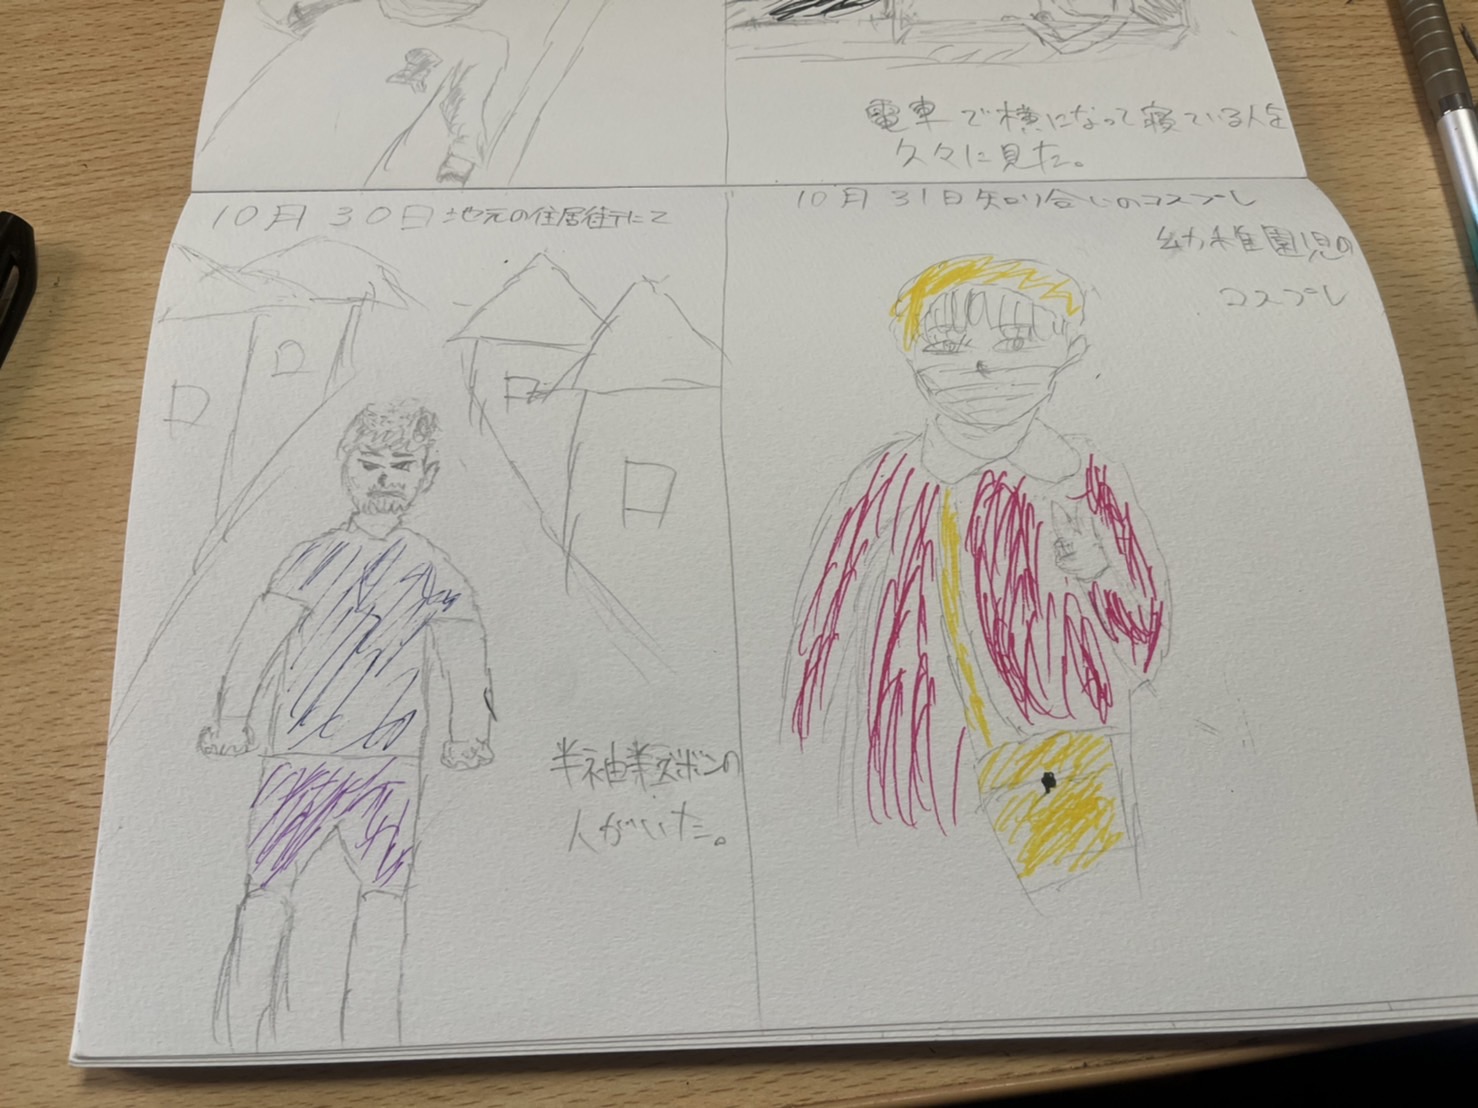 電車で横になって寝ている人を
久々に見た。
10月30日地元の住居街にて
半袖半ズボンの
人がいた。
10月31日知り合いのコスプレ
幼稚園児の
コスプレ